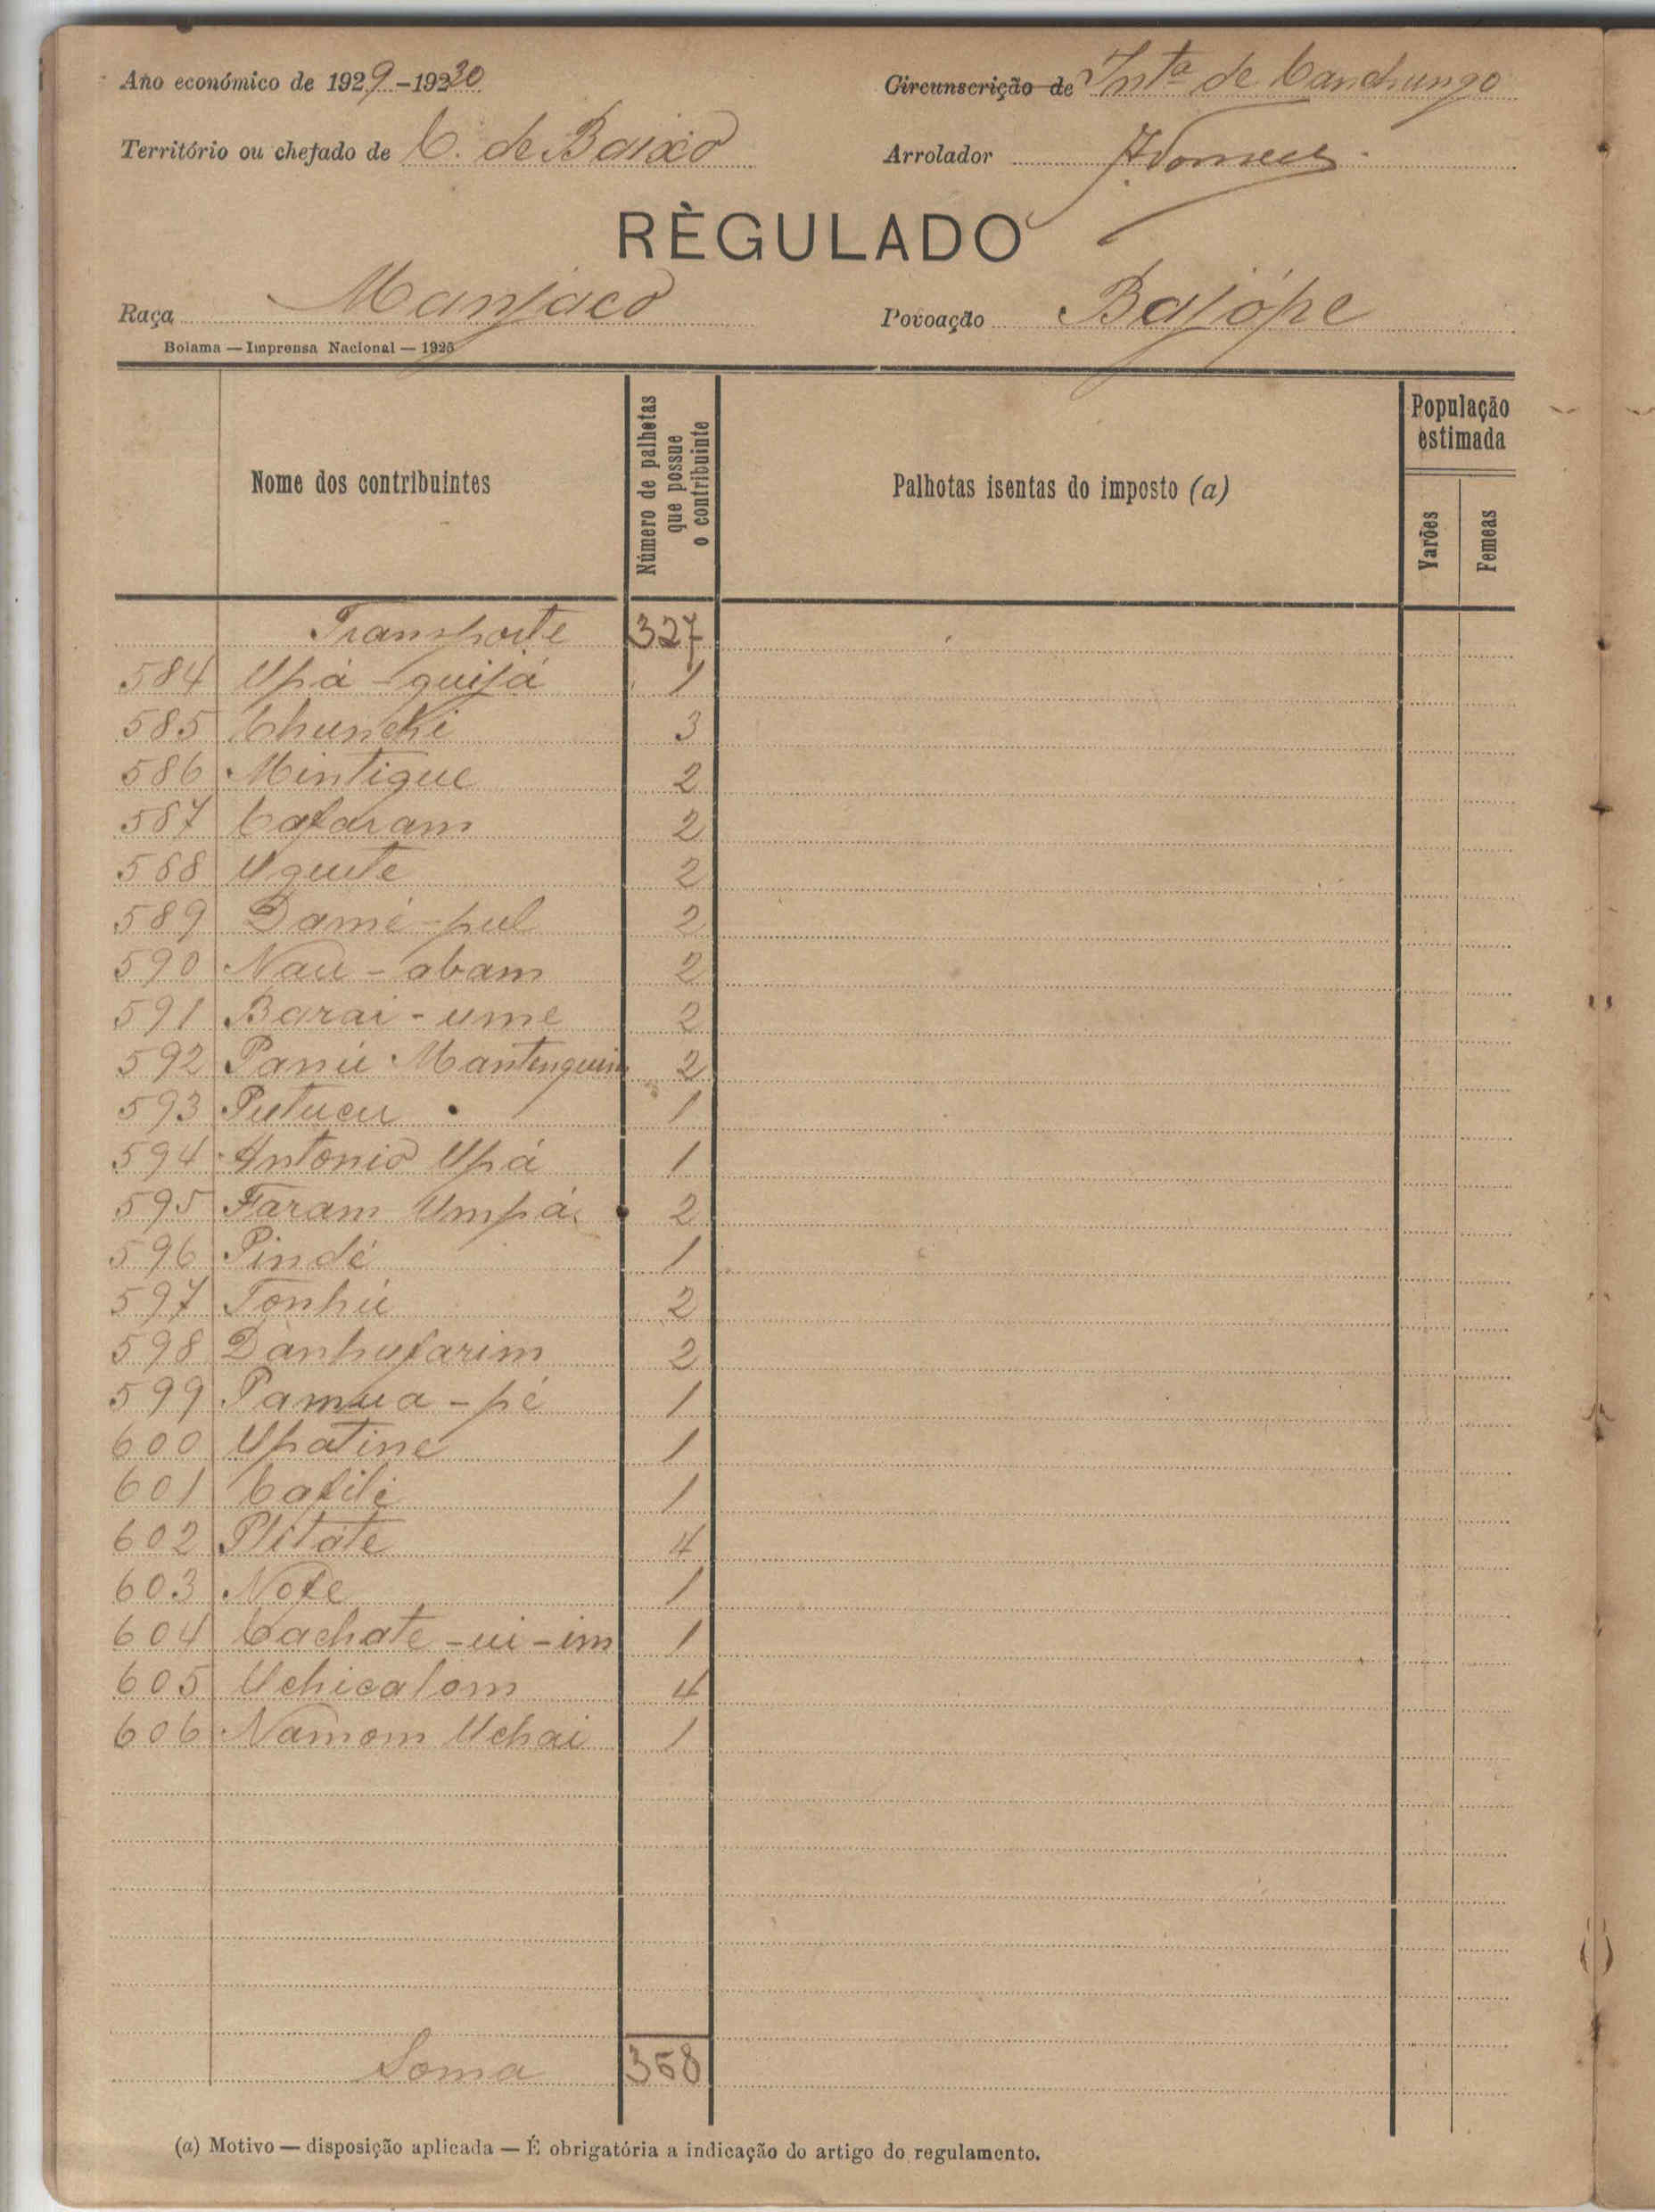 Año económico de 1929-1930
Circunscrição de Intª de Canchungo
Território ou chefado de C. de Baixo
Arrolador
RÈGULADO
Raça Manjaco
Povoação Bajópe
Bolama — Imprensa Nacional — 1925
Nome dos contribuintes
Número de palhotas que possue o contribuinte
Palhotas isentas do imposto (a)
População estimada
Varões
Femeas
Transporte 327
584 Upá-guijá 1
585 Chuncki 3
586 Mintique 2
587 Cafaram 2
588 Uguite 2
589 Damé-pul 2
590 Naú-abam 2
591 Barai-ume 2
592 Panú Mantenguin 2
593 Putucu 1
594 Antonio Upá 1
595 Faram Umpá 2
596 Pindé 1
597 Tonhú 2
598 Danhufarim 2
599 Pamua-pé 1
600 Upatine 1
601 Cafili 1
602 Plitate 4
603 Nofe 1
604 Cachate-ui-im 1
605 Uchicalom 4
606 Namom Uchai 1
Soma 368
(a) Motivo — disposição aplicada — É obrigatória a indicação do artigo do regulamento.